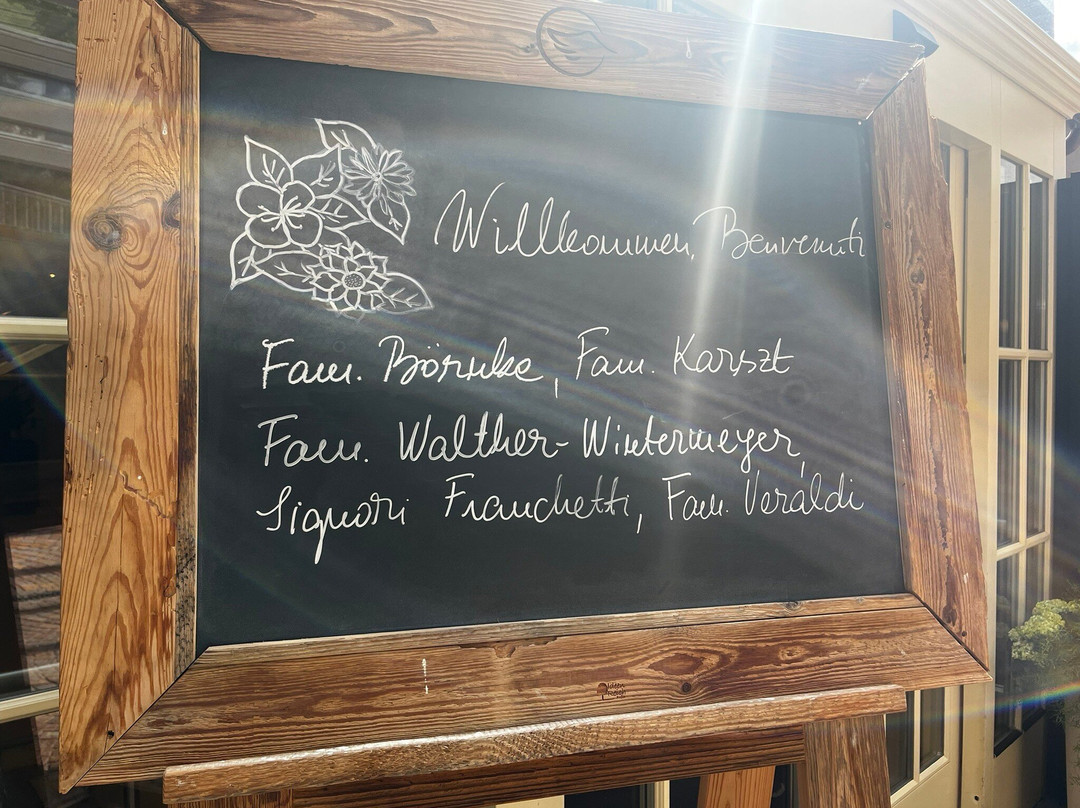 Willkommen, Benvenuti
Fam. Börnke, Fam. Karszt
Fam. Walther-Wintermeyer,
Signori Franchetti, Fam. Veraldi